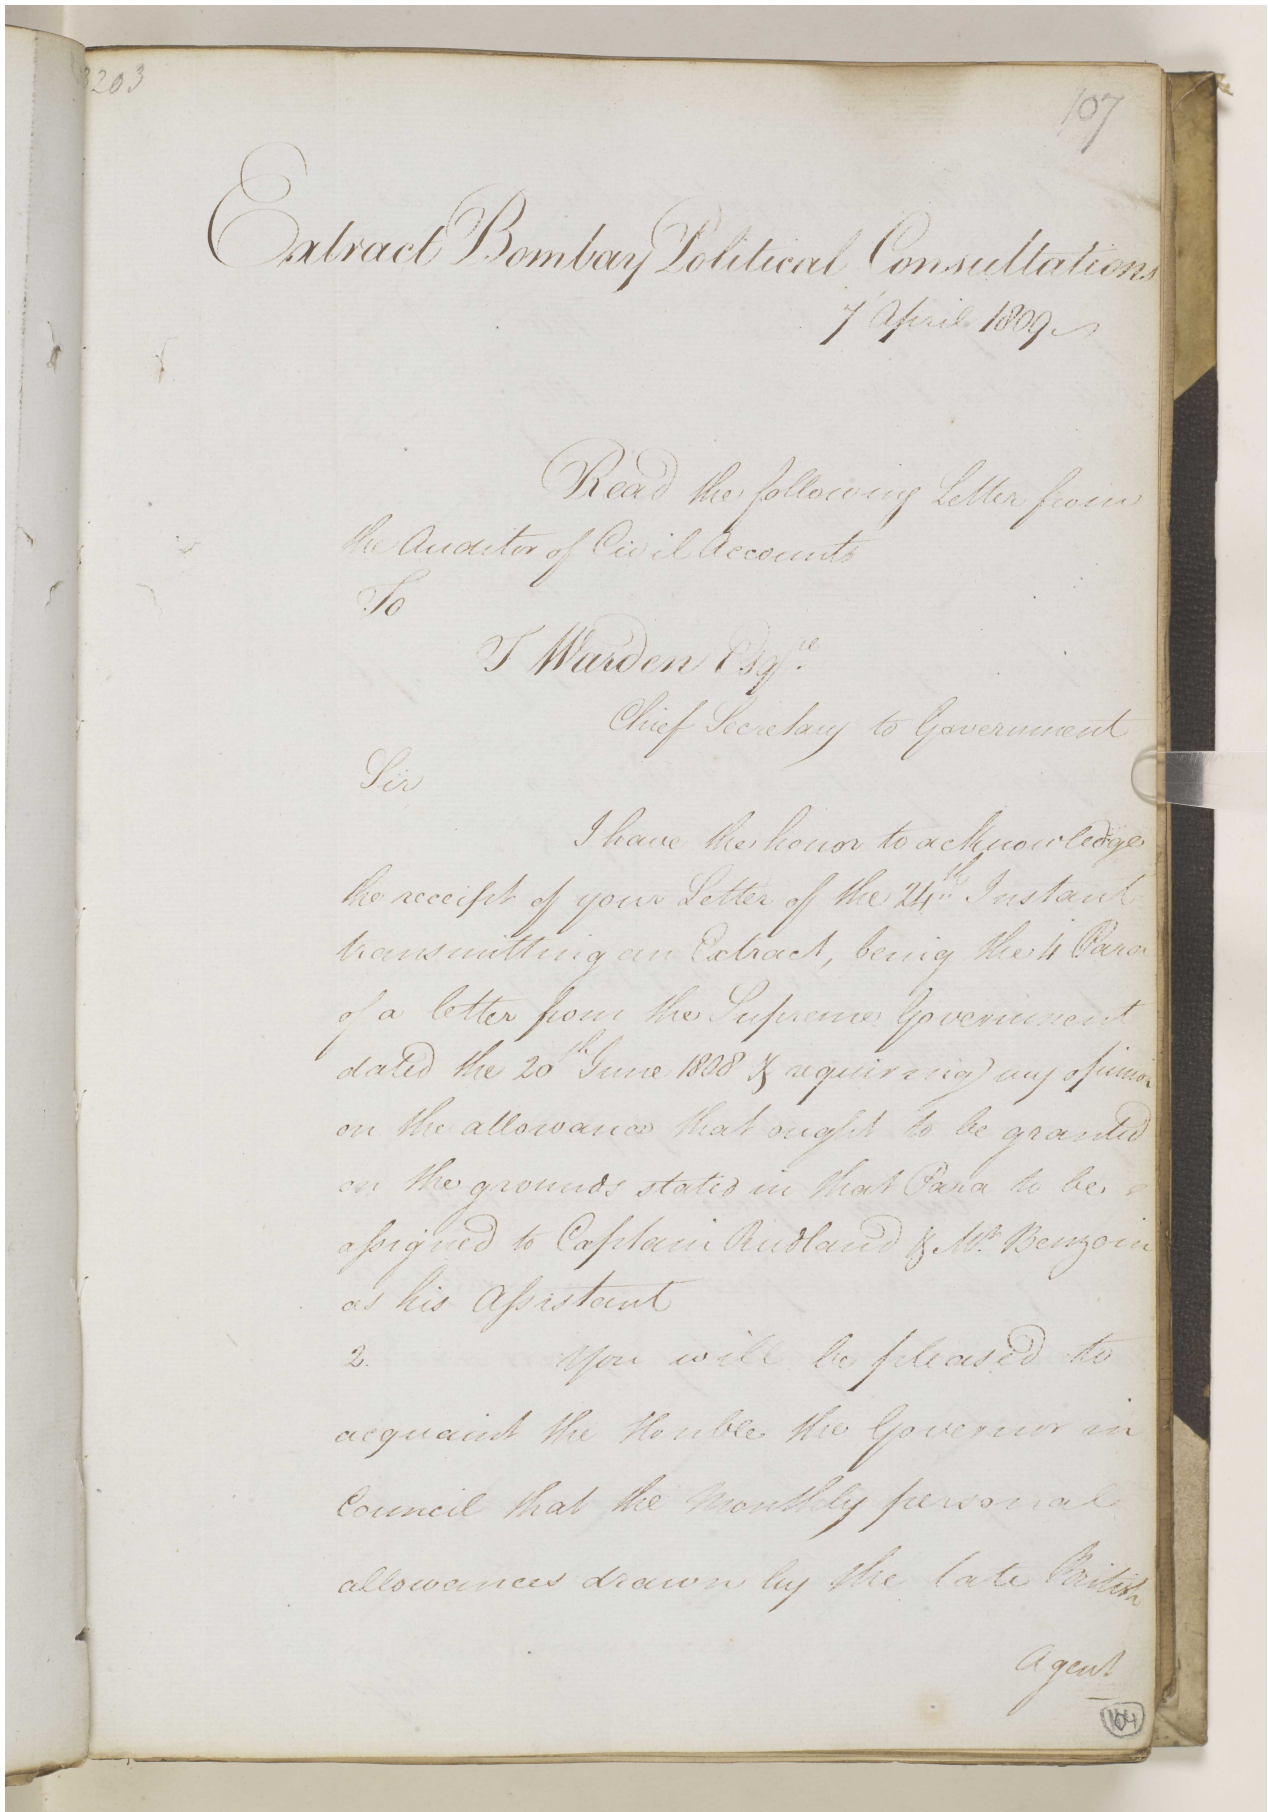 3203
107
Extract Bombay Political Consultations
7 April 1809
Read the following Letter from
the Auditor of Civil Accounts
To
F Warden Esqre.
Chief Secretary to Government
Sir
I have the honor to acknowledge
the receipt of your Letter of the 24th Instant
transmitting an Extract, being the 4 Para
of a letter from the Supreme Government
dated the 20th June 1808 & requiring my opinion
on the allowance that ought to be granted
on the grounds stated in that Para to be
assigned to Captain Rudland & Mr. Benzoin
as his Assistant
2. You will be pleased to
acquaint the Honble the Governor in
Council that the Monthly personal
allowances drawn by the late British
Agent
164